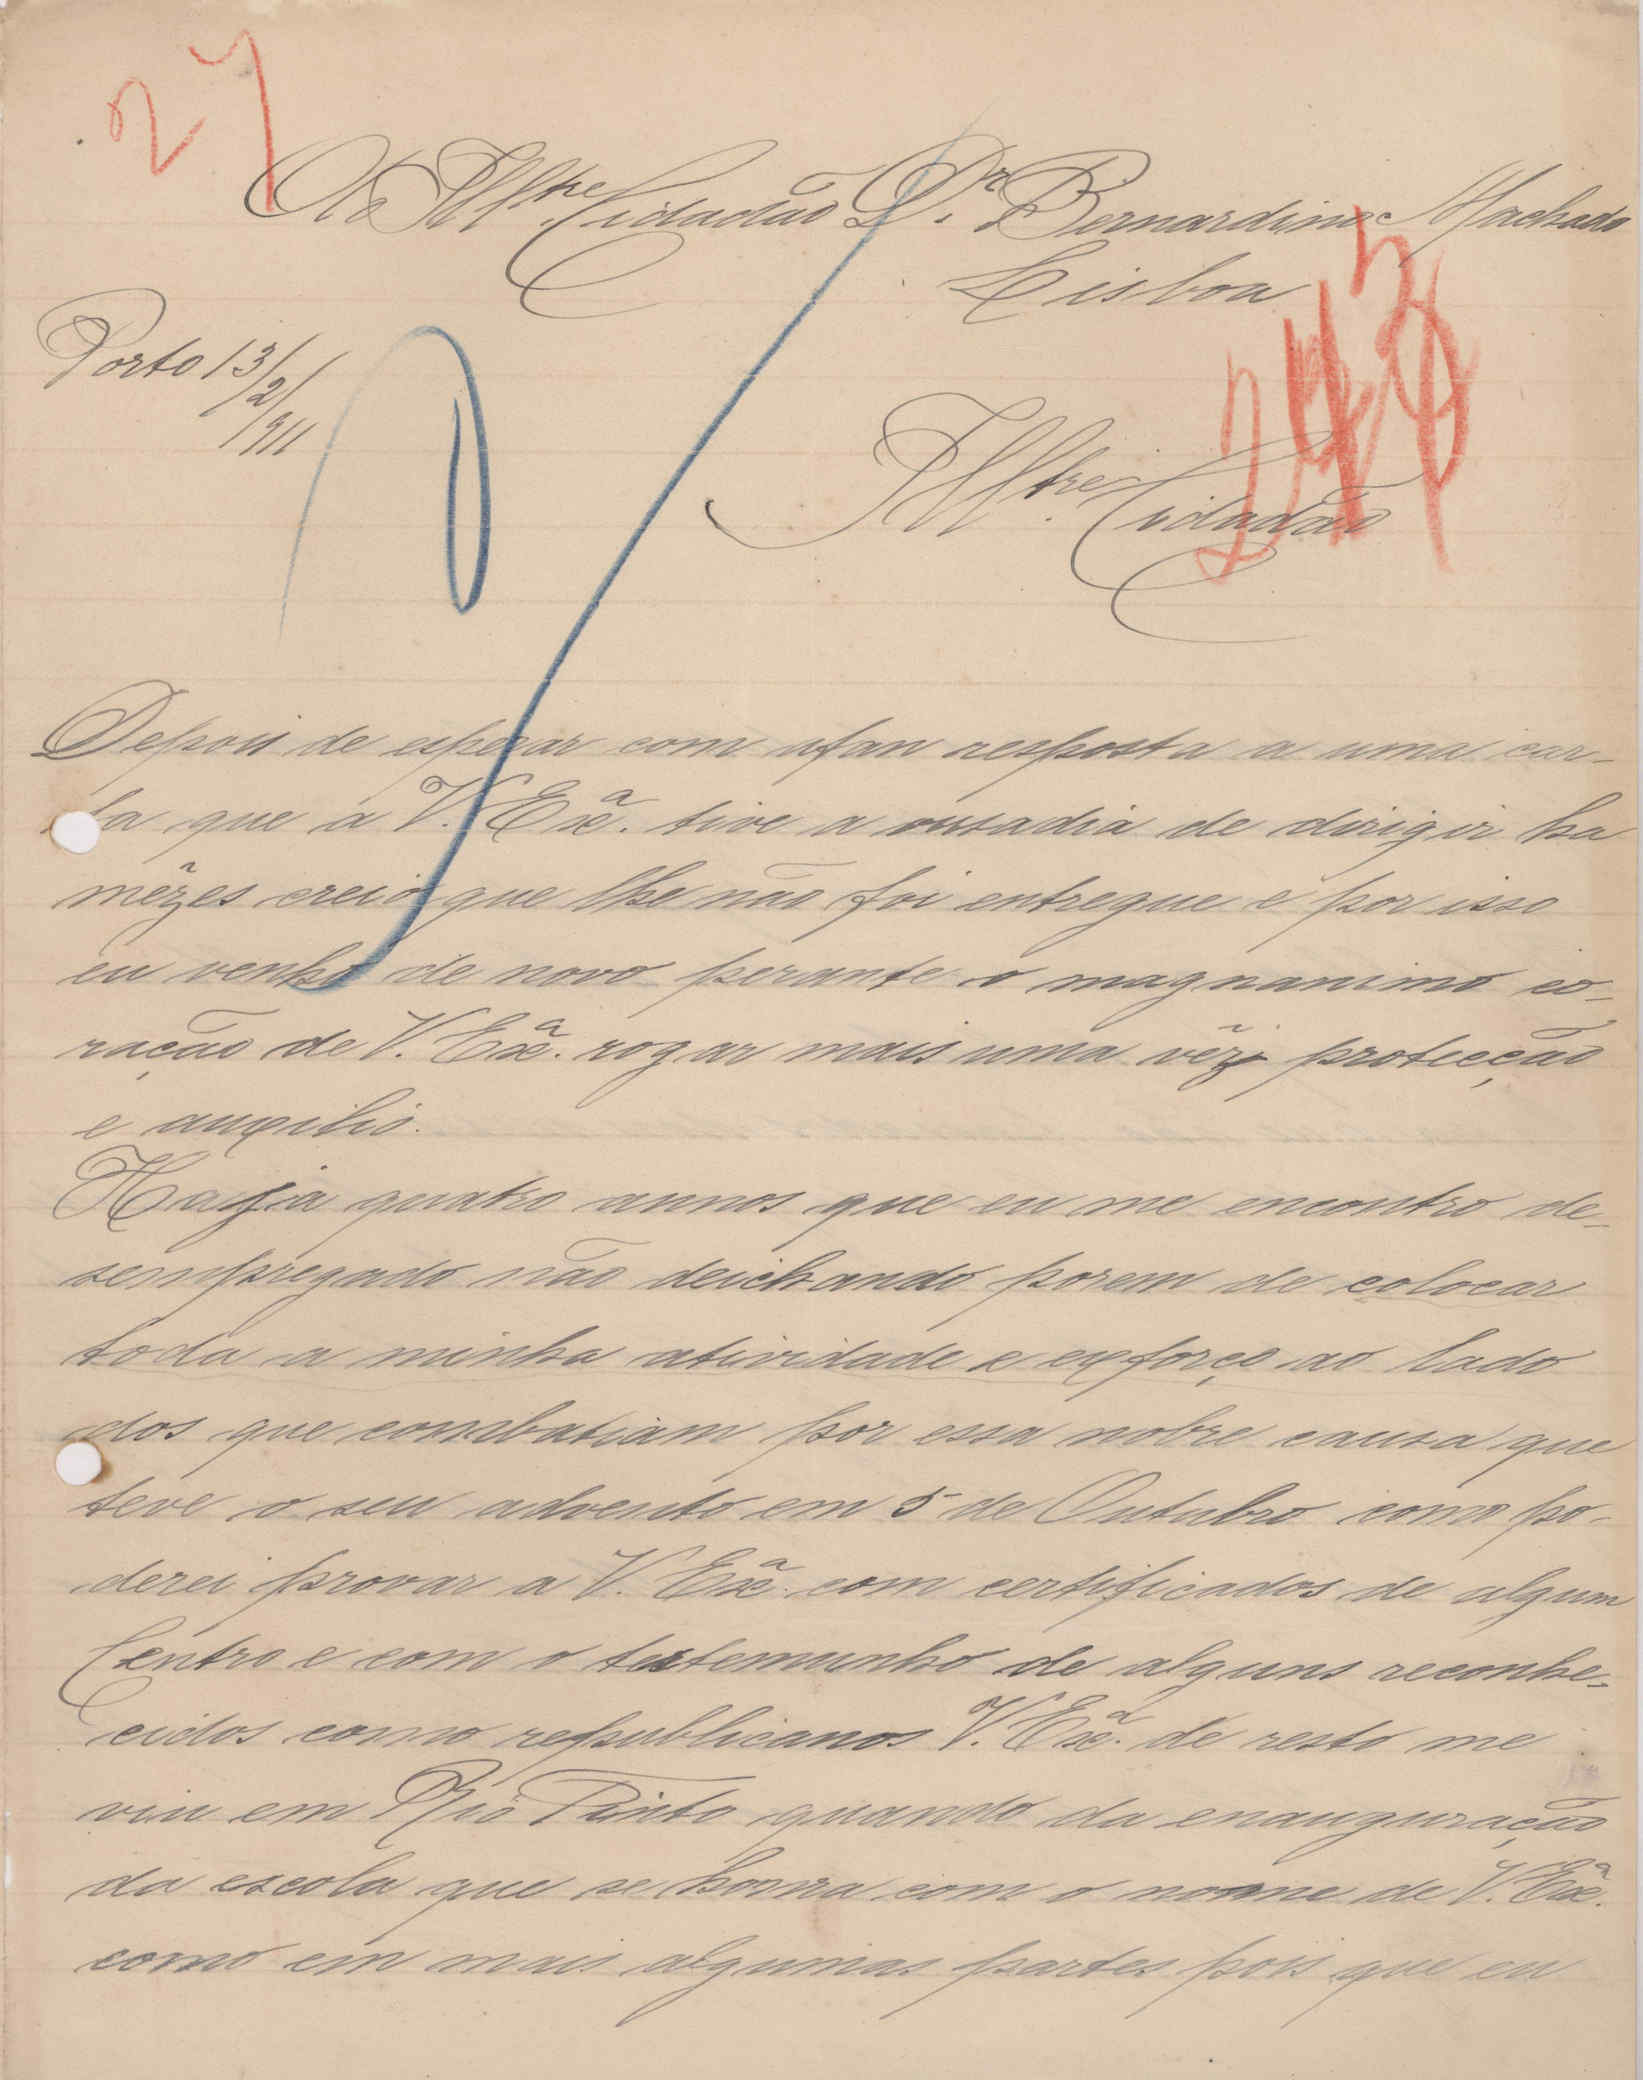 27
Ao Illtre Cidadão Dr. Bernardino Machado
Lisboa
Porto 13/2/911
Illtre. Cidadão
Depois de esperar com afan resposta a uma car-
ta que a V. Exª. tive a ousadia de dirigir ha
mêzes creio que lhe não foi entregue e por isso
eu venho de novo perante o magnanimo co-
ração de V. Exª. rogar mais uma vêz protecção
e auxilio.
Ha já quatro annos que eu me encontro de-
sempregado não deichando porem de colocar
toda a minha atividade e exforço ao lado
dos que combatiam por essa nobre causa que
teve o seu advento em 5 de Outubro como po-
derei provar a V. Exª. com certificados de algum
Centro e com o testemunho de alguns reconhe-
cidos como republicanos V. Exª. de resto me
viu em Rio Tinto quando da enauguração
da escola que se honra com o nome de V. Exª.
como em mais algumas partes pois que eu